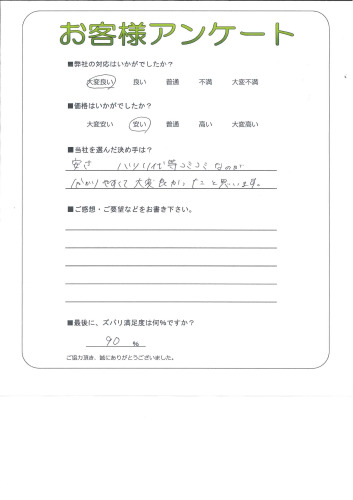 お客様アンケート
■弊社の対応はいかがでしたか？
大変良い 良い 普通 不満 大変不満
■価格はいかがでしたか？
大変安い 安い 普通 高い 大変高い
■当社を選んだ決め手は？
安さ ハツリ代等コミコミなのが
分かりやすくて大変良かったことと思います。
■ご感想・ご要望などをお書き下さい。
■最後に、ズバリ満足度は何%ですか？
90 %
ご協力頂き、誠にありがとうございました。